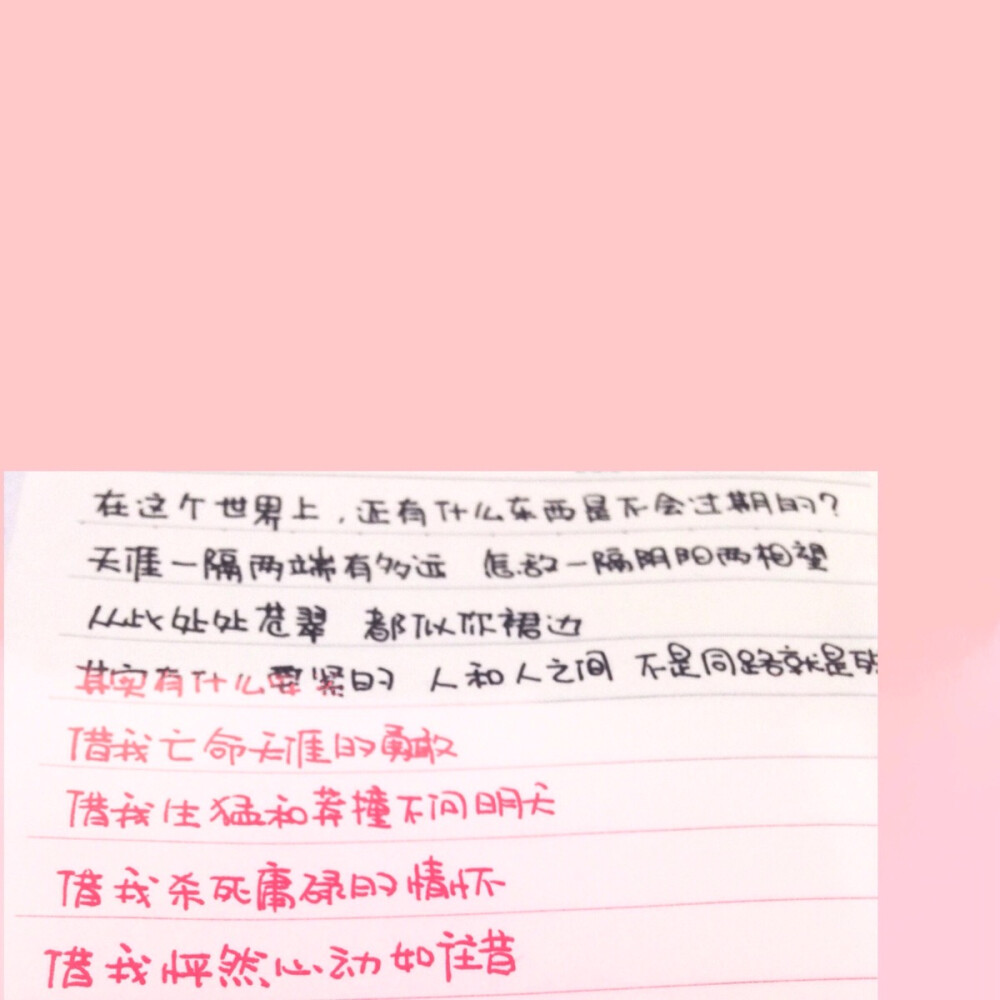 在这个世界上，还有什么东西是不会过期的?
天涯一隔两端有多远 怎敌一隔阴阳两相望
从此处处苍翠 都似你裙边
其实有什么要紧的 人和人之间 不是同路就是
借我亡命天涯的勇敢
借我生猛和莽撞不问明天
借我杀死庸碌的情怀
借我怦然心动如往昔